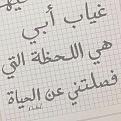 غياب أبي
هي اللحظة التي
فصلتني عن الحياة